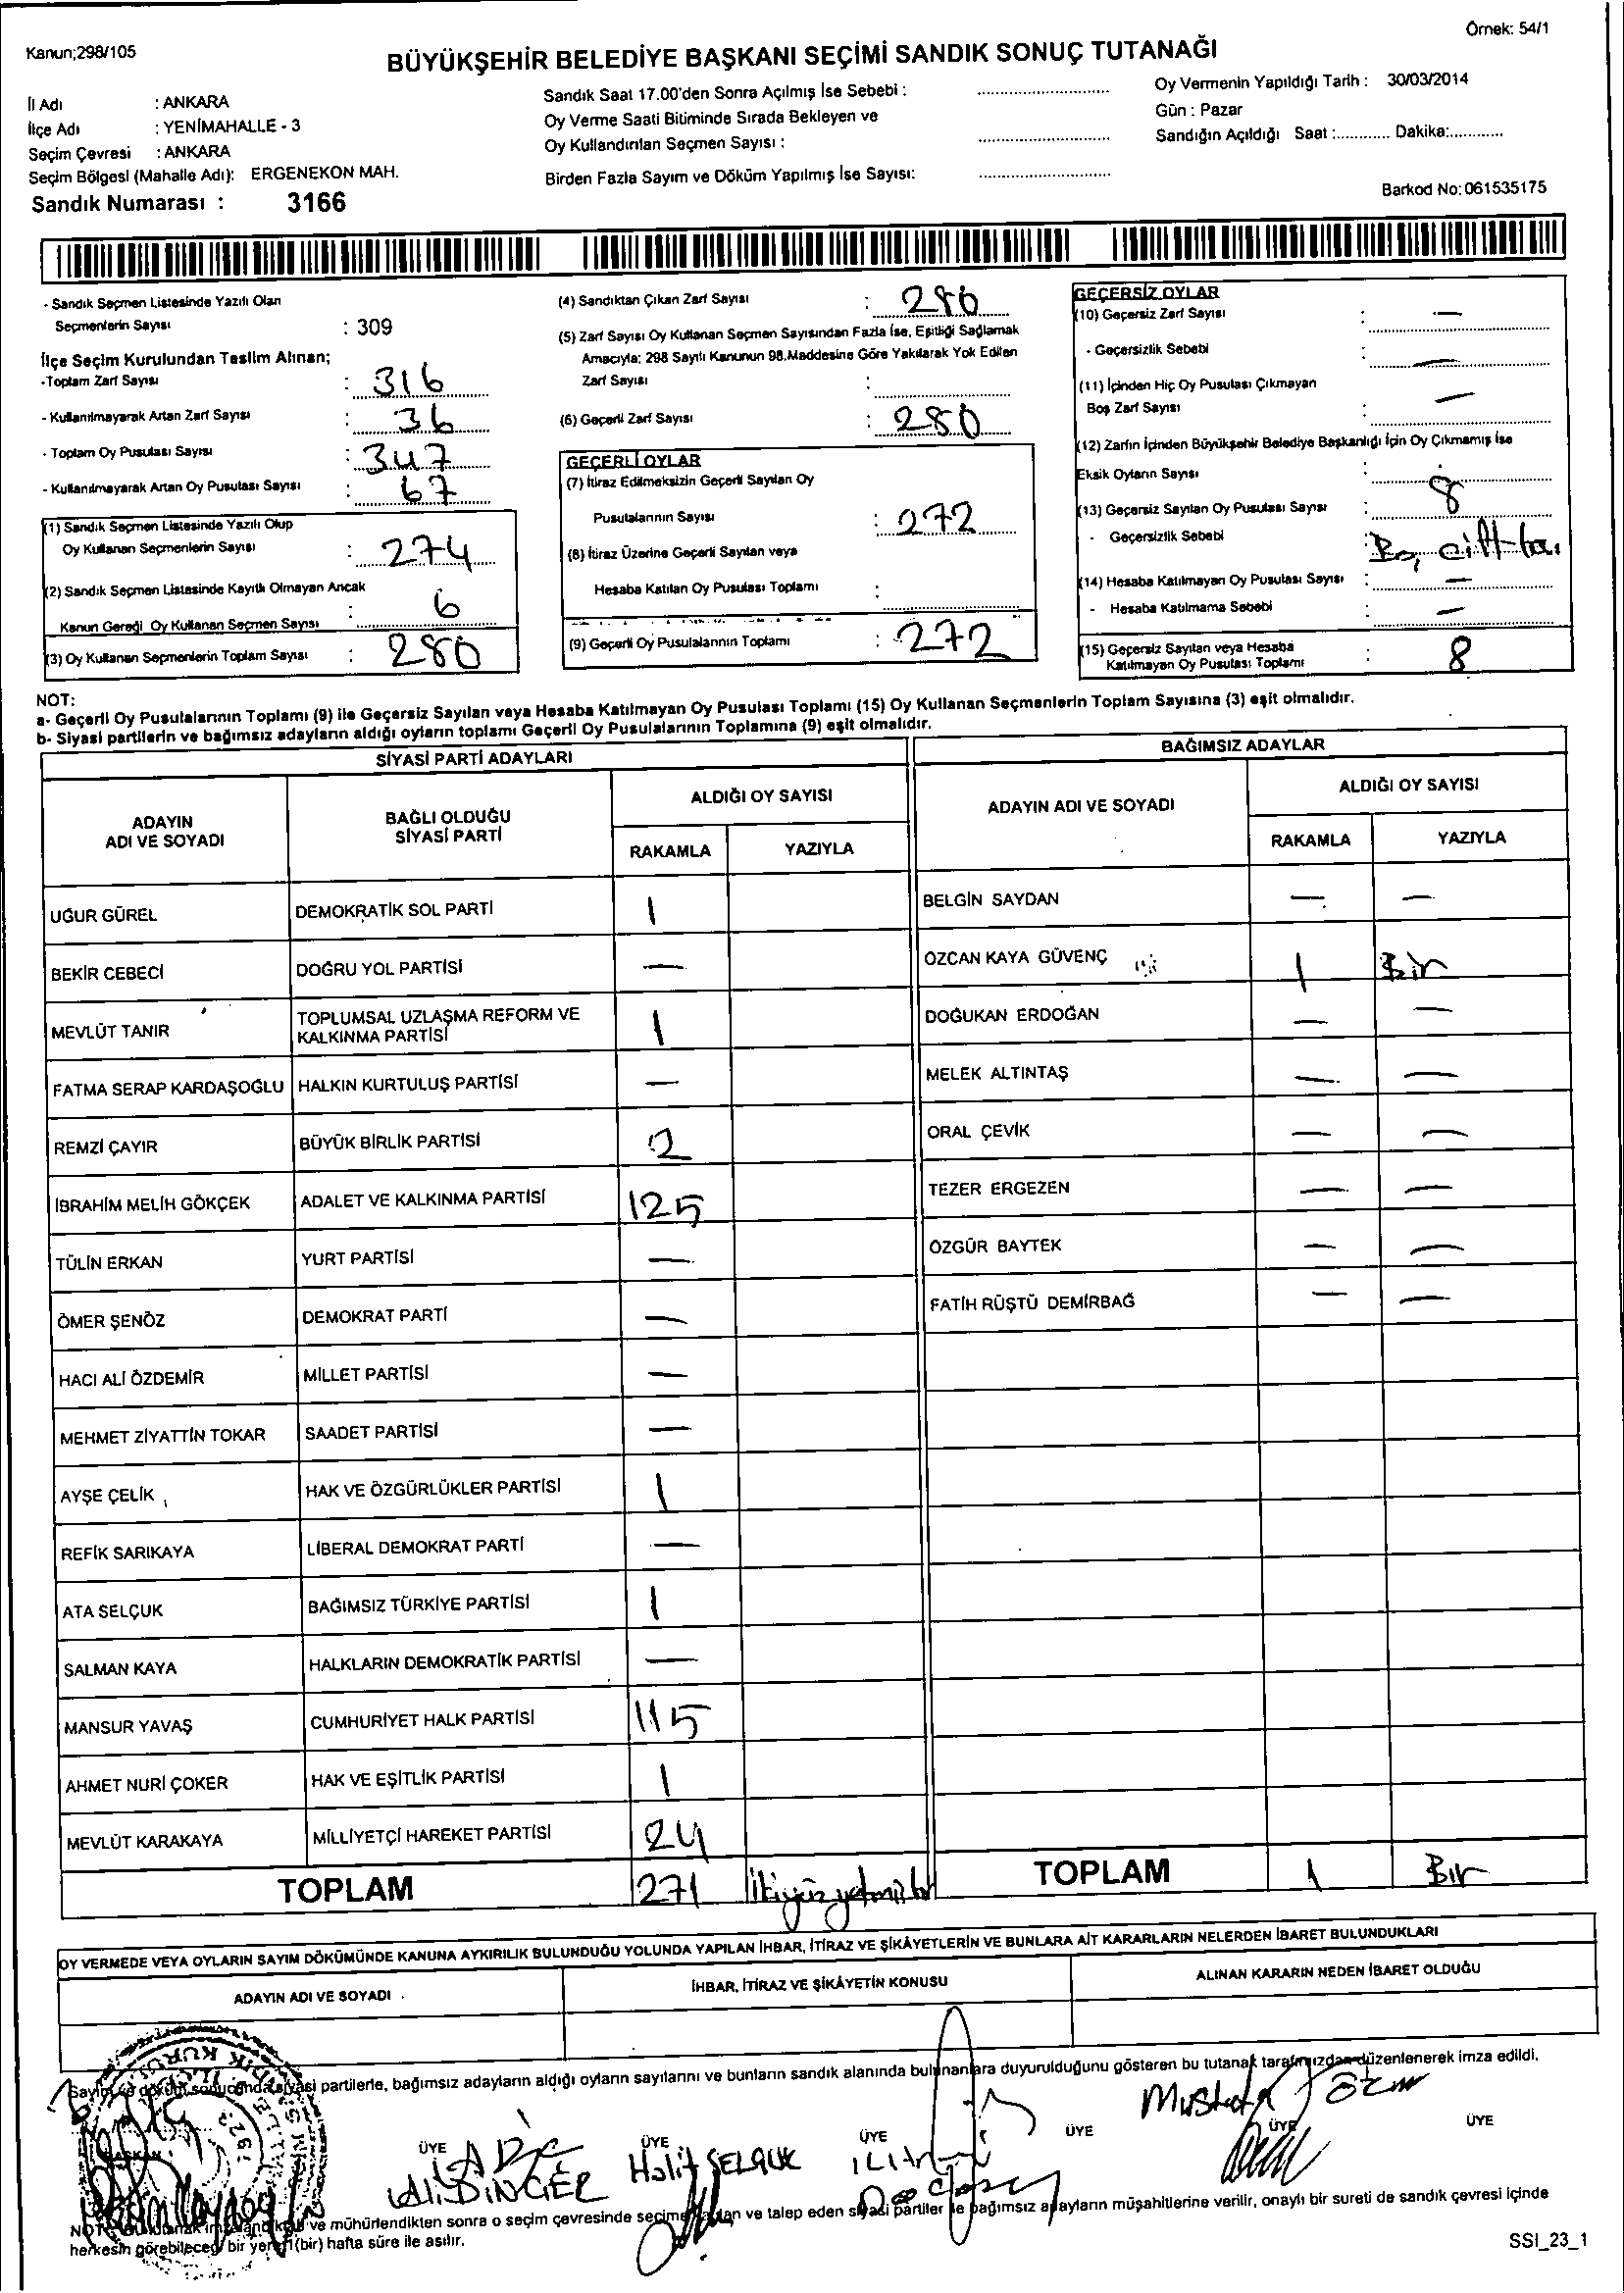 Örnek: 54/1
Kanun;298/105
BÜYÜKŞEHİR BELEDİYE BAŞKANI SEÇİMİ SANDIK SONUÇ TUTANAĞI
İl Adı : ANKARA
İlçe Adı : YENİMAHALLE - 3
Seçim Çevresi : ANKARA
Seçim Bölgesi (Mahalle Adı): ERGENEKON MAH.
Sandık Numarası : 3166
Sandık Saat 17.00'den Sonra Açılmış İse Sebebi :
Oy Verme Saati Bitiminde Sırada Bekleyen ve
Oy Kullandırılan Seçmen Sayısı :
Birden Fazla Sayım ve Döküm Yapılmış İse Sayısı:
Oy Vermenin Yapıldığı Tarih : 30/03/2014
Gün : Pazar
Sandığın Açıldığı Saat :............ Dakika:............
Barkod No: 061535175
- Sandık Seçmen Listesinde Yazılı Olan
Seçmenlerin Sayısı : 309
İlçe Seçim Kurulundan Teslim Alınan;
-Toplam Zarf Sayısı : 316
- Kullanılmayarak Artan Zarf Sayısı : 36
- Toplam Oy Pusulası Sayısı : 347
- Kullanılmayarak Artan Oy Pusulası Sayısı : 67
(1) Sandık Seçmen Listesinde Yazılı Olup
Oy Kullanan Seçmenlerin Sayısı : 274
(2) Sandık Seçmen Listesinde Kayıtlı Olmayan Ancak
Kanun Gereği Oy Kullanan Seçmen Sayısı : 6
(3) Oy Kullanan Seçmenlerin Toplam Sayısı : 280
(4) Sandıktan Çıkan Zarf Sayısı : 280
(5) Zarf Sayısı Oy Kullanan Seçmen Sayısından Fazla İse, Eşitliği Sağlamak
Amacıyla; 298 Sayılı Kanunun 98.Maddesine Göre Yakılarak Yok Edilen
Zarf Sayısı :
(6) Geçerli Zarf Sayısı : 280
GEÇERLİ OYLAR
(7) İtiraz Edilmeksizin Geçerli Sayılan Oy
Pusulalarının Sayısı : 272
(8) İtiraz Üzerine Geçerli Sayılan veya
Hesaba Katılan Oy Pusulası Toplamı :
(9) Geçerli Oy Pusulalarının Toplamı : 272
GEÇERSİZ OYLAR
(10) Geçersiz Zarf Sayısı : —
- Geçersizlik Sebebi : —
(11) İçinden Hiç Oy Pusulası Çıkmayan
Boş Zarf Sayısı : —
(12) Zarfın İçinden Büyükşehir Belediye Başkanlığı İçin Oy Çıkmamış İse
Eksik Oyların Sayısı :
(13) Geçersiz Sayılan Oy Pusulası Sayısı : 8
- Geçersizlik Sebebi :
(14) Hesaba Katılmayan Oy Pusulası Sayısı : —
- Hesaba Katılmama Sebebi : —
(15) Geçersiz Sayılan veya Hesaba
Katılmayan Oy Pusulası Toplamı : 8
NOT:
a- Geçerli Oy Pusulalarının Toplamı (9) ile Geçersiz Sayılan veya Hesaba Katılmayan Oy Pusulası Toplamı (15) Oy Kullanan Seçmenlerin Toplam Sayısına (3) eşit olmalıdır.
b- Siyasi partilerin ve bağımsız adayların aldığı oyların toplamı Geçerli Oy Pusulalarının Toplamına (9) eşit olmalıdır.
SİYASİ PARTİ ADAYLARI
ADAYIN ADI VE SOYADI
BAĞLI OLDUĞU SİYASİ PARTİ
ALDIĞI OY SAYISI
RAKAMLA YAZIYLA
UĞUR GÜREL DEMOKRATİK SOL PARTİ 1
BEKİR CEBECİ DOĞRU YOL PARTİSİ —
MEVLÜT TANIR TOPLUMSAL UZLAŞMA REFORM VE KALKINMA PARTİSİ 1
FATMA SERAP KARDAŞOĞLU HALKIN KURTULUŞ PARTİSİ —
REMZİ ÇAYIR BÜYÜK BİRLİK PARTİSİ 2
İBRAHİM MELİH GÖKÇEK ADALET VE KALKINMA PARTİSİ 125
TÜLİN ERKAN YURT PARTİSİ —
ÖMER ŞENÖZ DEMOKRAT PARTİ —
HACI ALİ ÖZDEMİR MİLLET PARTİSİ —
MEHMET ZİYATTİN TOKAR SAADET PARTİSİ —
AYŞE ÇELİK HAK VE ÖZGÜRLÜKLER PARTİSİ 1
REFİK SARIKAYA LİBERAL DEMOKRAT PARTİ —
ATA SELÇUK BAĞIMSIZ TÜRKİYE PARTİSİ 1
SALMAN KAYA HALKLARIN DEMOKRATİK PARTİSİ —
MANSUR YAVAŞ CUMHURİYET HALK PARTİSİ 115
AHMET NURİ ÇOKER HAK VE EŞİTLİK PARTİSİ 1
MEVLÜT KARAKAYA MİLLİYETÇİ HAREKET PARTİSİ 24
TOPLAM 271 İkiyüz yetmiş bir
BAĞIMSIZ ADAYLAR
ADAYIN ADI VE SOYADI
ALDIĞI OY SAYISI
RAKAMLA YAZIYLA
BELGİN SAYDAN — —
ÖZCAN KAYA GÜVENÇ 1 Bir
DOĞUKAN ERDOĞAN — —
MELEK ALTINTAŞ — —
ORAL ÇEVİK — —
TEZER ERGEZEN — —
ÖZGÜR BAYTEK — —
FATİH RÜŞTÜ DEMİRBAĞ — —
TOPLAM 1 Bir
OY VERMEDE VEYA OYLARIN SAYIM DÖKÜMÜNDE KANUNA AYKIRILIK BULUNDUĞU YOLUNDA YAPILAN İHBAR, İTİRAZ VE ŞİKÂYETLERİN VE BUNLARA AİT KARARLARIN NELERDEN İBARET BULUNDUKLARI
ADAYIN ADI VE SOYADI
İHBAR, İTİRAZ VE ŞİKÂYETİN KONUSU
ALINAN KARARIN NEDEN İBARET OLDUĞU
Sayım ve döküm sonucunda siyasi partilerle, bağımsız adayların aldığı oyların sayılarını ve bunların sandık alanında bulunanlara duyurulduğunu gösteren bu tutanak tarafımızdan düzenlenerek imza edildi.
BAŞKAN ÜYE ÜYE ÜYE ÜYE ÜYE ÜYE
Mustafa
Ali DİNÇER
Halit SELÇUK
NOT: Bu tutanak imzalandıktan ve mühürlendikten sonra o seçim çevresinde seçime katılan ve talep eden siyasi partiler ile bağımsız adayların müşahitlerine verilir, onaylı bir sureti de sandık çevresi içinde
herkesin görebileceği bir yere 1(bir) hafta süre ile asılır.
SSI_23_1